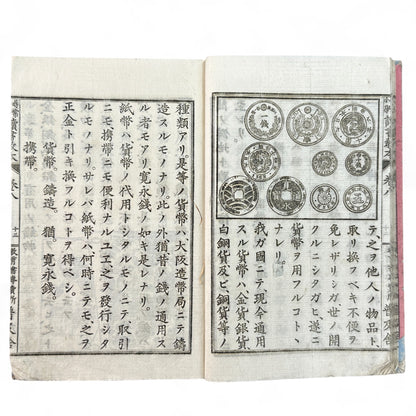 テ之ヲ他人ノ物品ト、
取リ換フベキ不便ヲ
免レザリシガ、世ノ開
クルニシタガヒ、遂ニ
貨幣ヲ用フルコトヽ
ナレリ。
我ガ國ニテ、現今通用
スル貨幣ハ、金貨銀貨
白銅貨及ビ、銅貨等ノ
種類アリ。是等ノ貨幣ハ、大阪造幣局ニテ鑄
造スルモノナリ。此ノ外、猶昔ノ錢ノ通用ス
ル者モアリ。寛永錢ノ如キ是レナリ。
紙幣ハ、貨幣ノ代用トシタルモノニテ、取引
ニモ、攜帶ニモ便利ナルユヱ、之ヲ發行シタ
ルモノナリ。サレバ紙幣ハ、何時ニテモ、之ヲ
正金ト引キ換フルコトヲ得ベシ。
貨幣。鑄造。猶。寛永錢。
攜帶。
卷八
十二